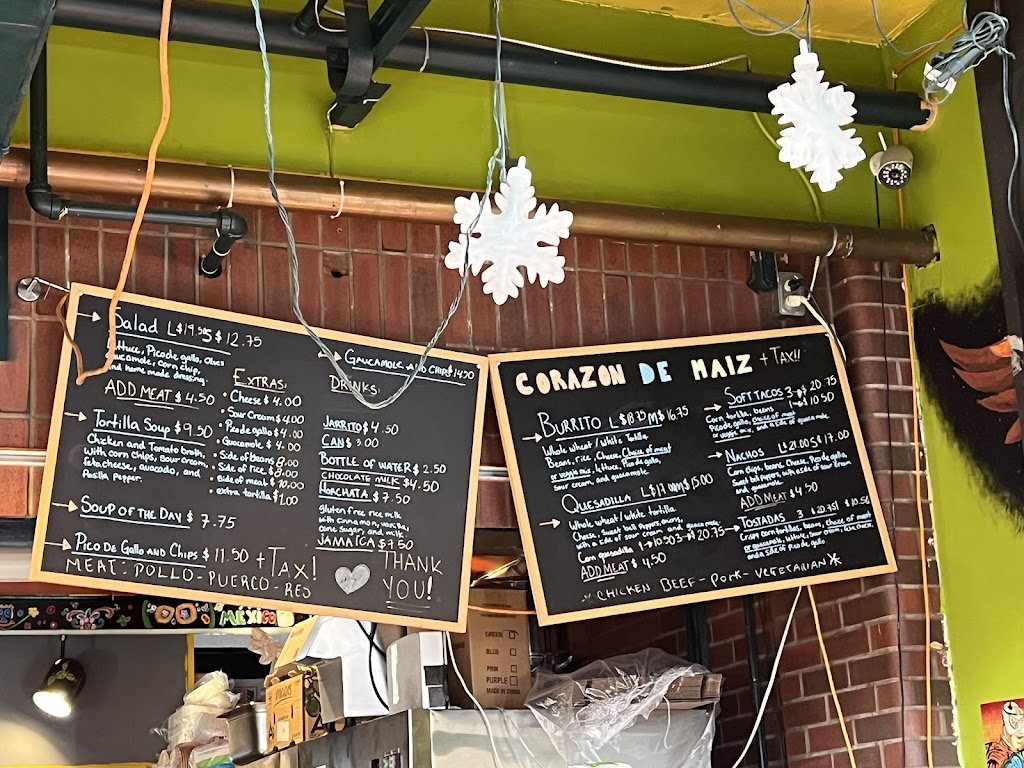 Salad L $19.5 S $12.75
lettuce, Pico de gallo, olives
guacamole, corn chip,
and home made dressing.
ADD MEAT $4.50
Tortilla Soup $9.50
Chicken and Tomato broth,
with corn chips, sour cream,
feta cheese, avocado, and
Pasilla Pepper.
SOUP OF THE DAY $7.75
PICO DE GALLO AND CHIPS $11.50 + TAX!
MEAT: POLLO - PUERCO - RES
EXTRAS:
• Cheese $4.00
• Sour Cream $4.00
• Pico de gallo $4.00
• Guacamole. $4.00
• Side of beans 8.00
• Side of rice $8.00
• Side of meat $10.00
• extra tortilla $1.00
GAUCAMOLE AND CHIPS $14.50
DRINKS:
JARRITO $4.50
CAN $3.00
BOTTLE OF WATER $2.50
CHOCOLATE MILK $4.50
HORCHATA $7.50
gluten free rice milk
with cinnamon, vanilla,
cane sugar, and milk
JAMAICA $7.50
THANK
YOU!
CORAZON DE MAIZ + TAX!!
BURRITO L $18.75 M $16.75
Whole wheat / white tortilla
Beans, rice, cheese, choice of meat
or veggie mix, lettuce, Pico de gallo,
sour cream, and guacamole
QUESADILLA L $17.00 M $15.00
Whole wheat / white tortilla
Cheese, sweet bell peppers, onions,
with a side of sour cream and guacamole
Corn quesadilla 1→10.50 3→$20.75
ADD MEAT $4.50
SOFT TACOS 3→$20.75
1→$10.50
Corn tortilla, beans
Pico de gallo, choice of meat
or veggie mix, and a side of guacamole
NACHOS L $21.00 S $17.00
Corn chips, beans, cheese, Pico de gallo,
Sweet bell pepper, with a side of sour cream
and guacamole.
ADD MEAT $4.50
TOSTADAS 3 $20.75 1 $10.50
Crispy corn tortillas, beans, choice of meat
or guacamole, lettuce, sour cream, feta cheese,
and a side of Pico de gallo
* CHICKEN BEEF - PORK - VEGETARIAN *
MÉXICO
GREEN
BLUE
PINK
PURPLE
MADE IN CHINA